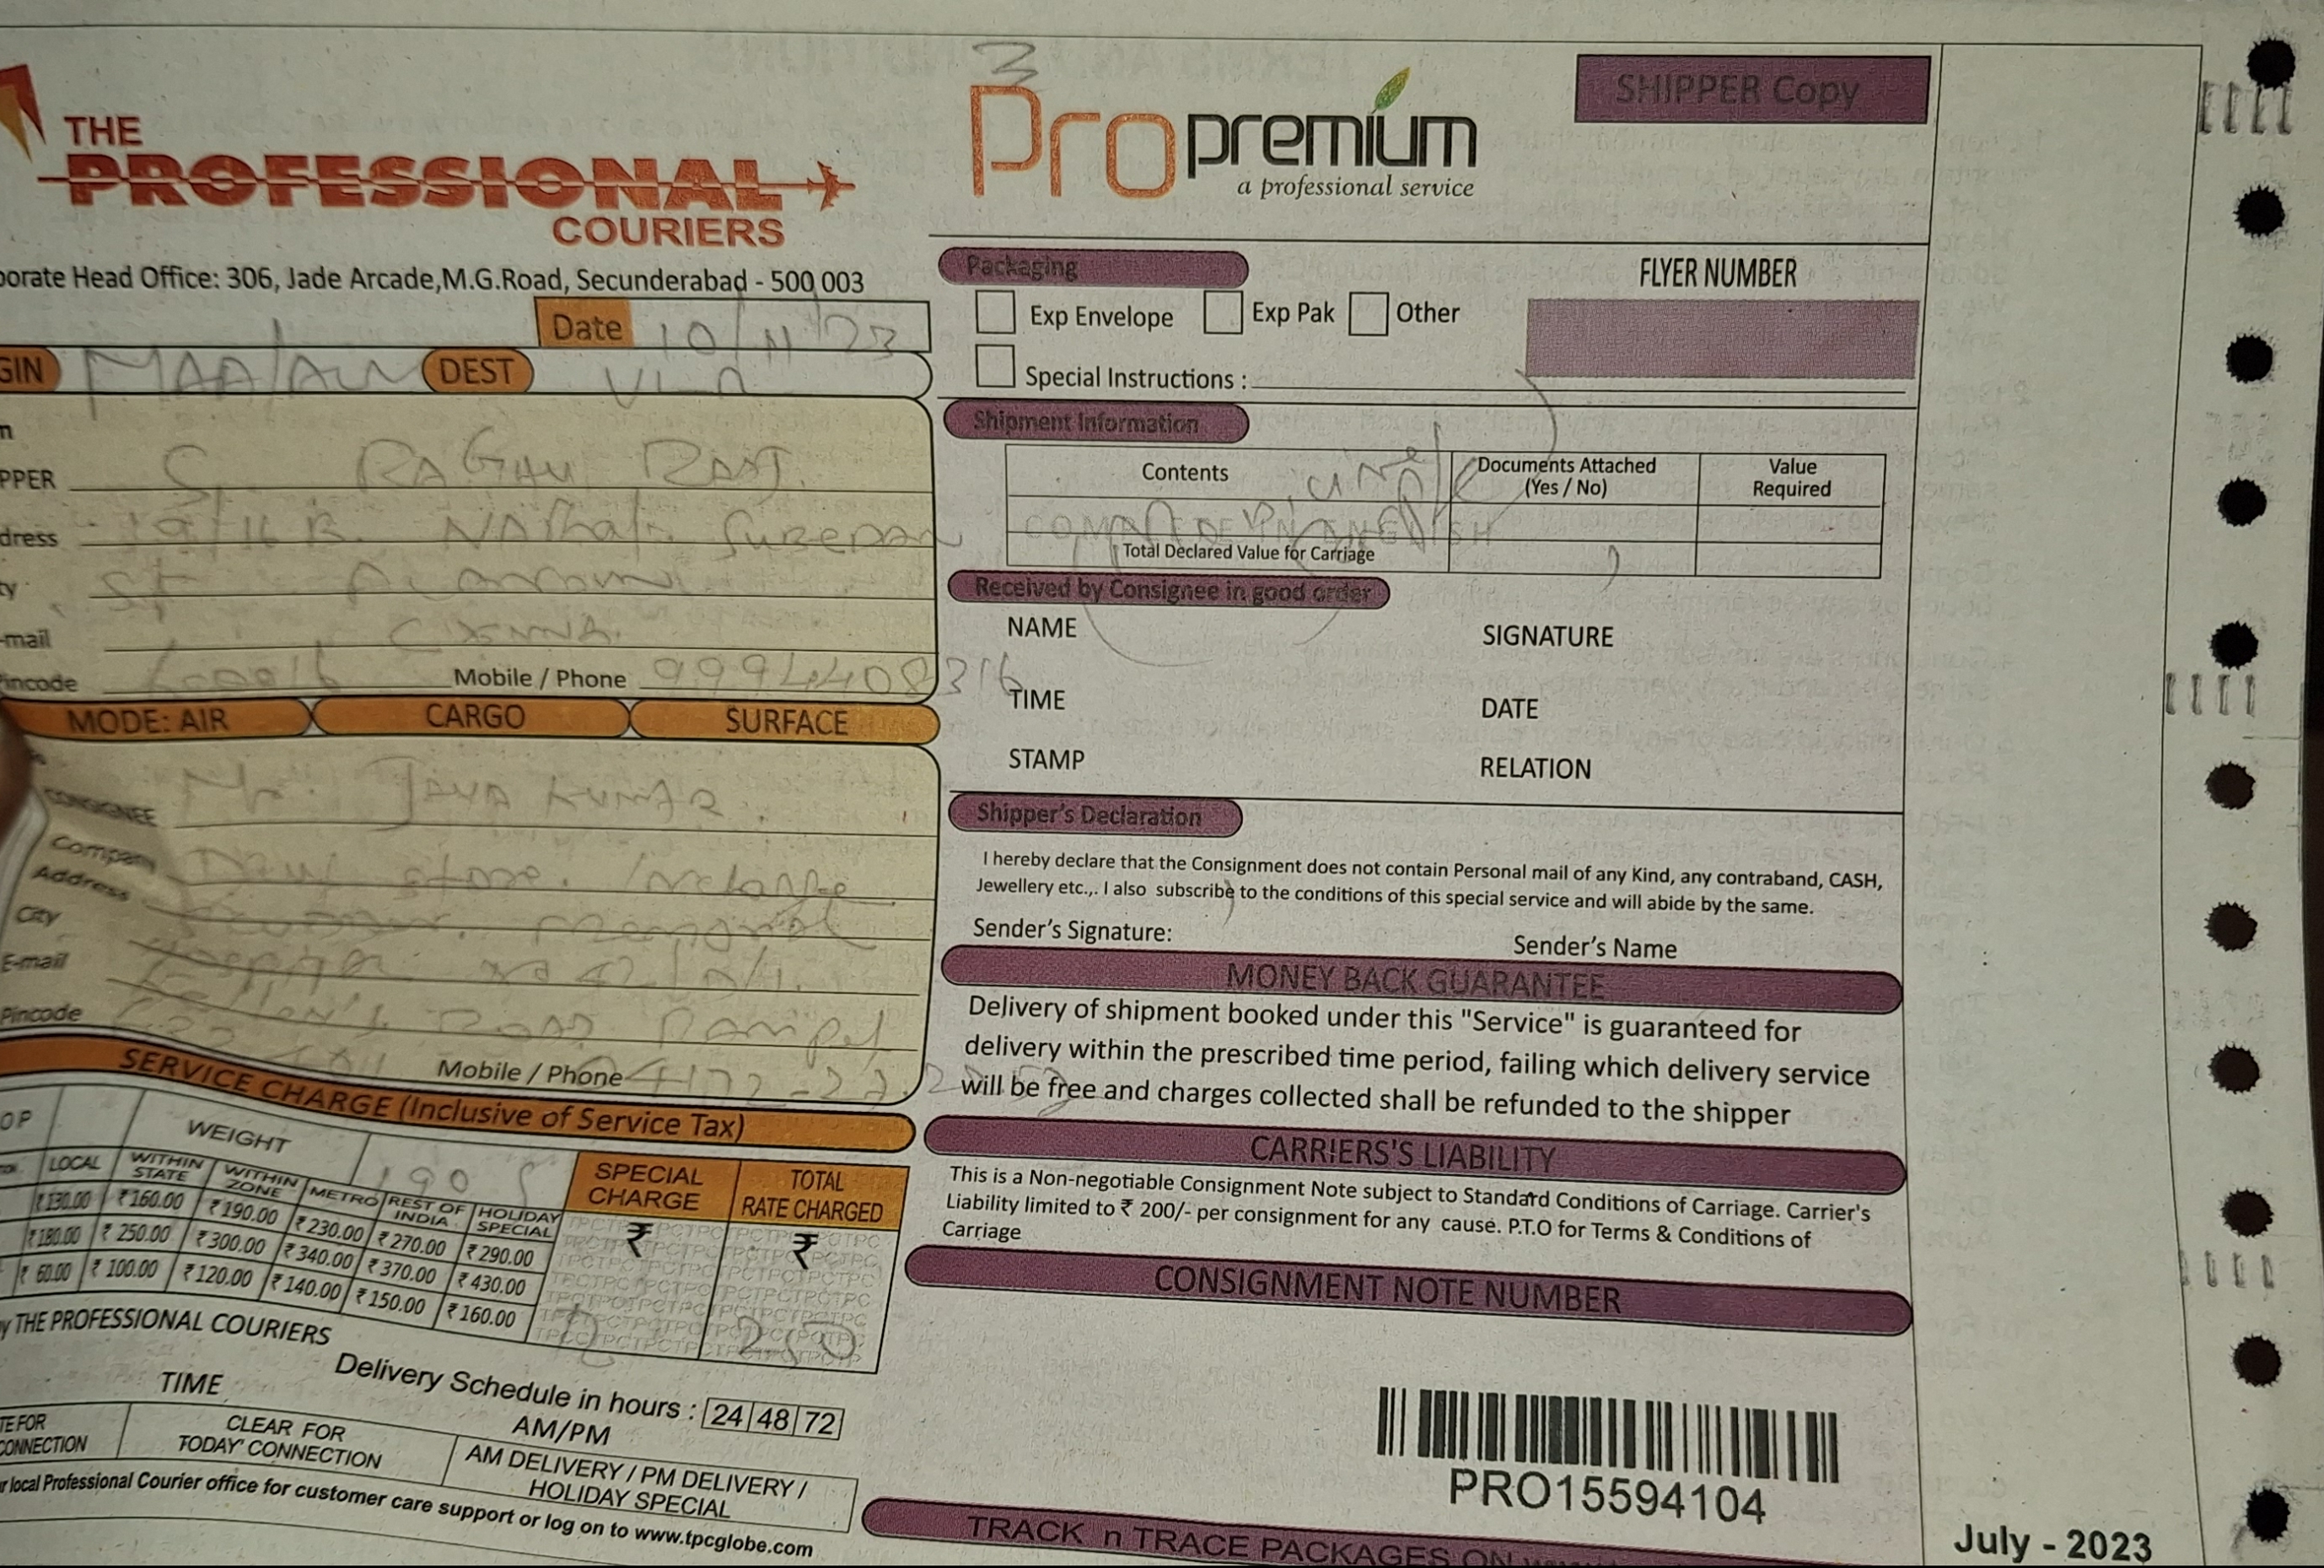 3
THE
PROFESSIONAL
COURIERS
Pro premium
a professional service
SHIPPER Copy
porate Head Office: 306, Jade Arcade,M.G.Road, Secunderabad - 500 003
Date 10/11/23
GIN MAA/AU DEST
PPER S. RAGHU RAJ.
dress 19/11B.
ty St
-mail
incode 600016 Mobile / Phone 9994408316
MODE: AIR CARGO SURFACE
CONSIGNEE Mr. JAYA KUMAR.
Company store. Incharge
Address Memorial
City Hospital
E-mail Road
Pincode
Mobile / Phone 4172-22
SERVICE CHARGE (Inclusive of Service Tax)
WEIGHT 190
LOCAL WITHIN STATE WITHIN ZONE METRO REST OF INDIA HOLIDAY SPECIAL
SPECIAL CHARGE TOTAL RATE CHARGED
₹130.00 ₹160.00 ₹190.00 ₹230.00 ₹270.00 ₹290.00
₹180.00 ₹250.00 ₹300.00 ₹340.00 ₹370.00 ₹430.00
₹60.00 ₹100.00 ₹120.00 ₹140.00 ₹150.00 ₹160.00
₹ ₹
y THE PROFESSIONAL COURIERS
Delivery Schedule in hours : 24 48 72
TIME AM/PM
TE FOR CONNECTION
CLEAR FOR
TODAY' CONNECTION
AM DELIVERY / PM DELIVERY /
HOLIDAY SPECIAL
r local Professional Courier office for customer care support or log on to www.tpcglobe.com
Packaging
FLYER NUMBER
Exp Envelope Exp Pak Other
Special Instructions :
Shipment Information
Contents Documents Attached (Yes / No) Value Required
Total Declared Value for Carriage
Received by Consignee in good order
NAME SIGNATURE
TIME DATE
STAMP RELATION
Shipper's Declaration
I hereby declare that the Consignment does not contain Personal mail of any Kind, any contraband, CASH,
Jewellery etc.,. I also subscribe to the conditions of this special service and will abide by the same.
Sender's Signature: Sender's Name
MONEY BACK GUARANTEE
Delivery of shipment booked under this "Service" is guaranteed for
delivery within the prescribed time period, failing which delivery service
will be free and charges collected shall be refunded to the shipper
CARRIERS'S LIABILITY
This is a Non-negotiable Consignment Note subject to Standard Conditions of Carriage. Carrier's
Liability limited to ₹ 200/- per consignment for any cause. P.T.O for Terms & Conditions of
Carriage
CONSIGNMENT NOTE NUMBER
PRO15594104
TRACK n TRACE PACKAGES ON
July - 2023